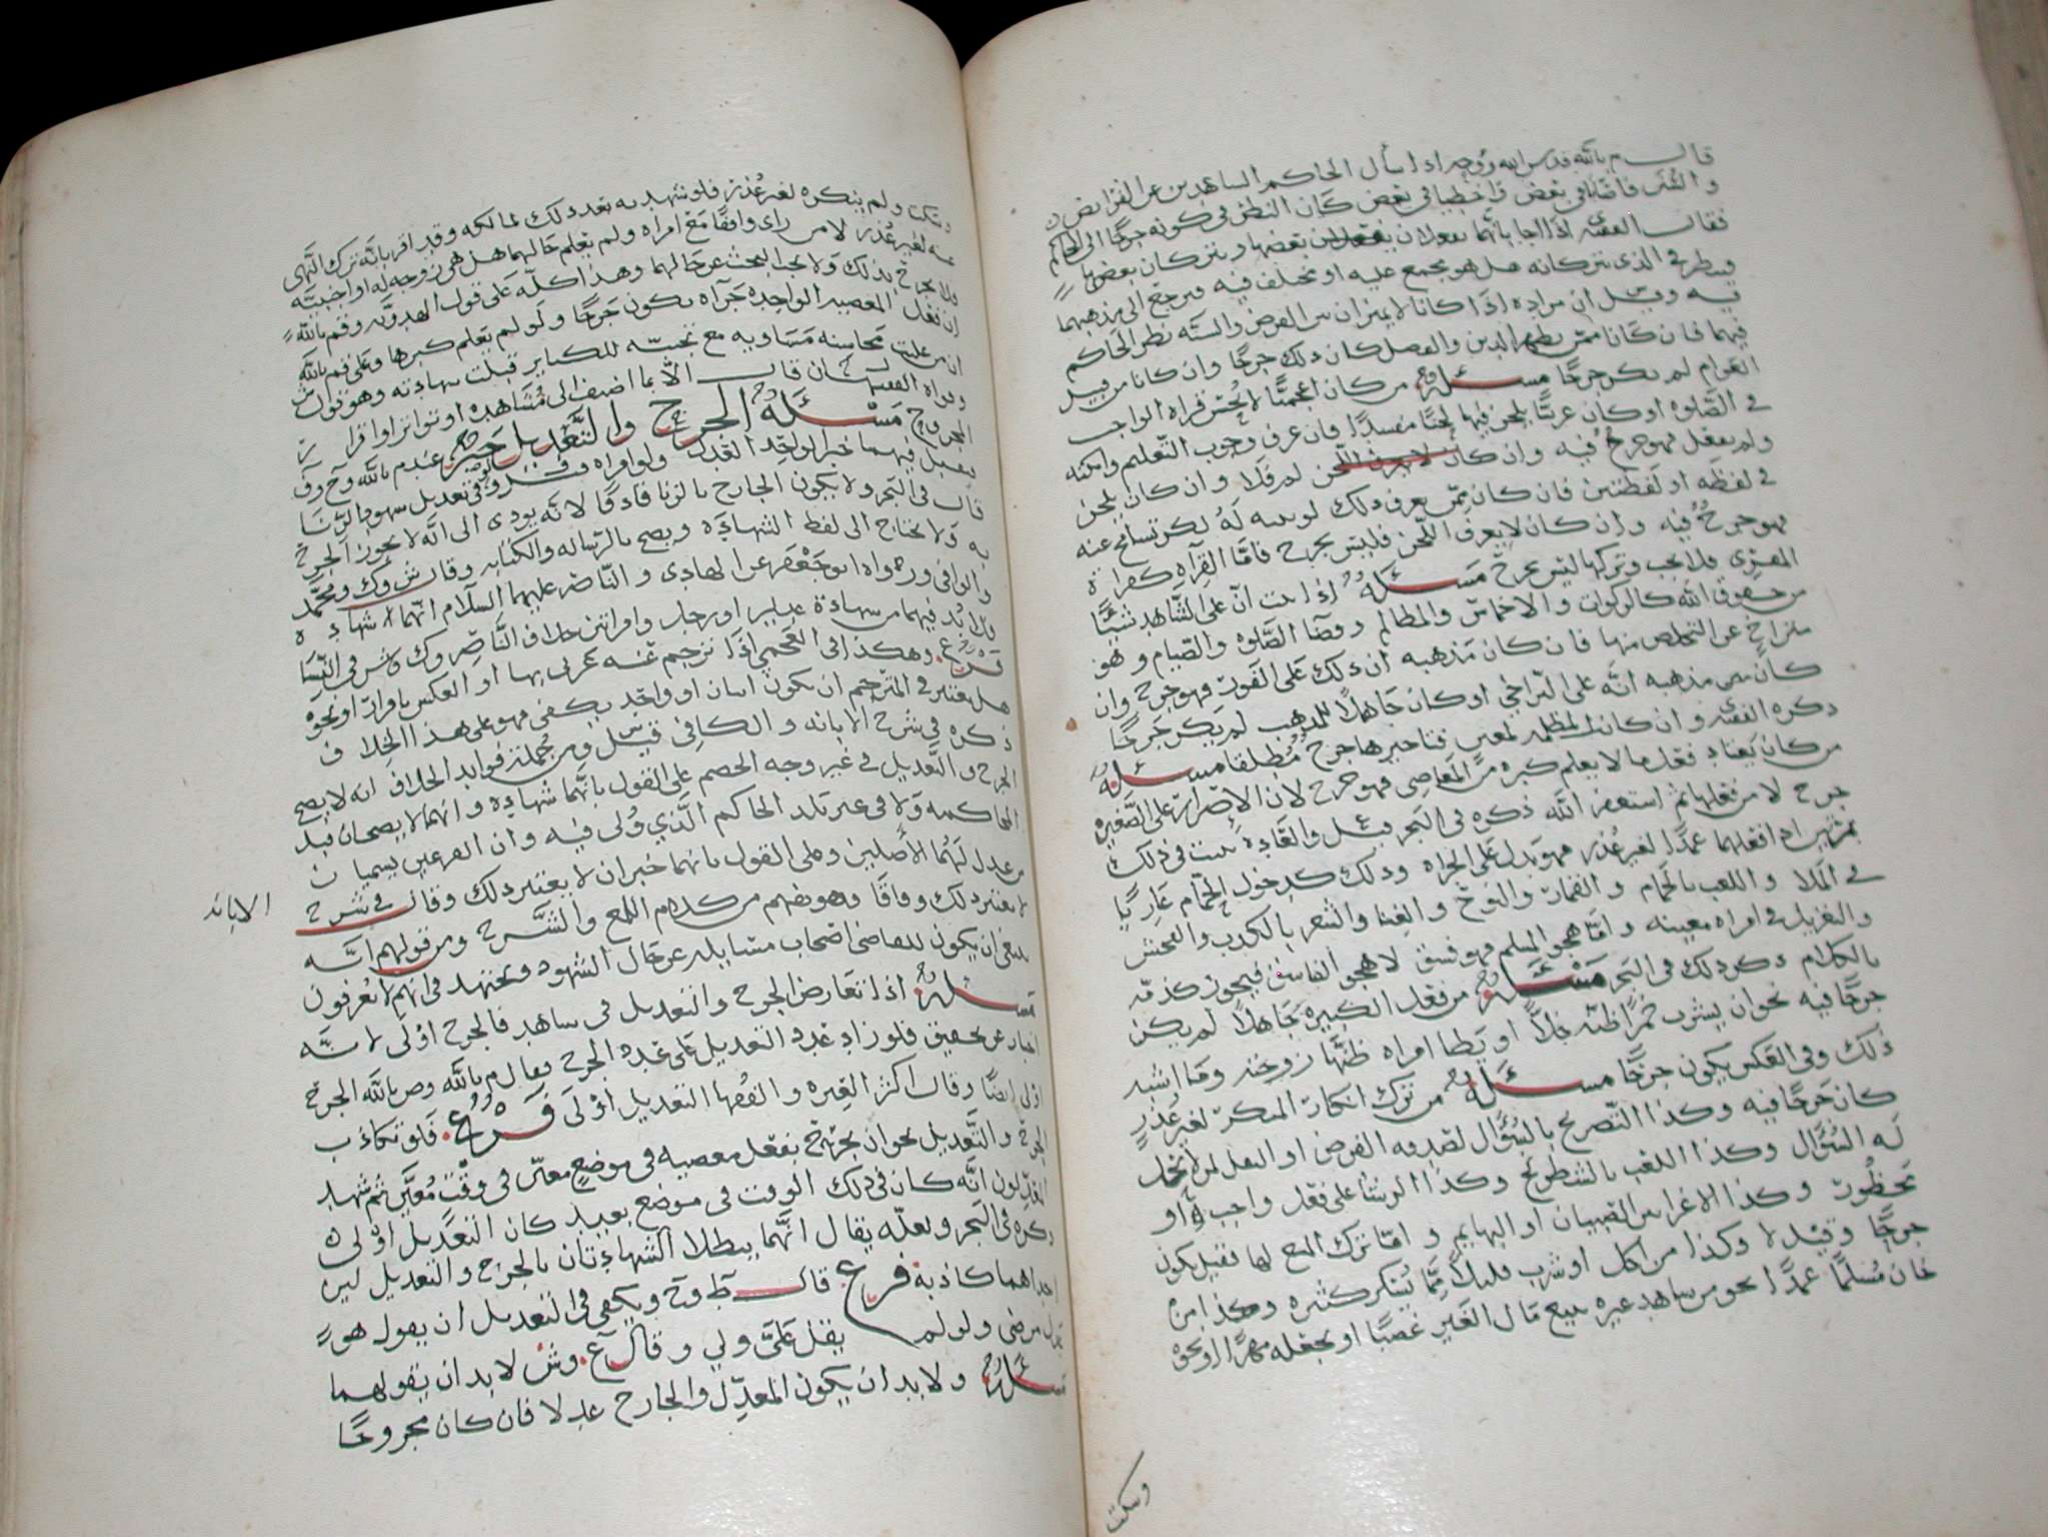 قال م بالله قدس الله روحه اذا سأل الحاكم الشاهدين عن الفرايض
والسنن فاصابا في بعض واخطيا في بعض كان النظر في كونه جرحا الى الحاكم
فقال الفقيه ى اذا اجابا بانهما يفعلان بعضها ويتركان بعضها
فينظر في الذي يتركانه هل هو مجمع عليه او مختلف فيه فيرجع الى مذهبهما
فيه وقيل ان مراده اذا كانا لا يميزان بين الفرض والسنه نظر الحاكم
فيهما فان كانا ممن يظهر الدين والفضل كان ذلك جرحا وان كانا من قبيل
العوام لم يكن جرحا مسئلة من كان اعجميا لا يحسن قراة الواجب
في الصلوه او كان عربيا يلحن فيها لحنا مفسدا فان عرف وجوب التعليم وامكنه
ولم يفعل فهو جرح فيه وان كان لا يعرف اللحن لم فلا وان كان يلحن
في لفظه او لفظتين فان كان ممن يعرف ذلك لو نبه له لكن تسامح عنه
فهو جرح فيه وان كان لا يعرف اللحن فليس بجرح فاما القراه كقراة
المقرى فلا يجب وتركها ليس بجرح مسئلة اذا ثبت ان على الشاهد شيئا
من حقوق الله كالزكوات والاخماس والمظالم وقضا الصلوه والصيام وهو
متراخ عن التخلص منها فان كان مذهبه ان ذلك على الفور فهو جرح وان
كان مذهبه انه على التراخي او كان جاهلا للمذهب لم يكن جرحا
ذكره الفقيه ى وان كان المظلمه لمعين فتاخيرها جرح مطلقا مسئلة
من كان يعتاد فعل ما لا يعلم كبره من المعاصي فهو جرح لان الاصرار على الصغيره
جرح لا من فعلها ثم استغفر الله ذكره في البحر قيل والعادة تثبت في ذلك
بمرتين اذا فعلهما عمدا لغير عذر فهو يدل على الجراه وذلك كدخول الحمام عاريا
في الملا واللعب بالحمام والقمار والنوح والغنا والشعر بالكذب والفحش
والتغزيل في امراه معينه واما هجو المسلم فهو فسق لا هجو الفاسق فيجوز كذمه
بالكلام ذكر ذلك في البحر مسئلة من فعل الكبيره جاهلا لم يكن
جرحا فيه نحو ان يشرب خمرا ظنه خلا او يطا امراه ظنها زوجته وما اشبه
ذلك وفي العكس يكون جرحا مسئلة من ترك انكار المنكر لغير عذر
كان جرحا فيه وكذا التصريح بالسؤال لصدقه الفرض او النفل لمن لا تحل
له السؤال وكذا اللعب بالشطرنج وكذا الرشا على فعل واجب او
محظور وكذا الاغرا بين الصبيان او البهايم واما ترك المنع لها فقيل يكون
جرحا وقيل لا وكذا من اكل او شرب قليلا مما يسكر كثيره وكذا من
خان مسلما عمدا نحو من شاهد غيره يبيع مال الغير غصبا او يجعله مهرا او نحوه
وسكت
وسكت ولم ينكره لغير عذر فلو شهد به بعد ذلك لمالكه وقد اقر بانه ترك النهي
عنه لغير عذر لا من راى واقفا مع امراه ولم يعلم حالهما هل هي زوجه له او اجنبيه
فلا يجرح بذلك ولا يجب البحث عن حالهما وهذا كله على قول الهدويه وقم بالله
ان فعل المعصيه الواحده جراه يكون جرحا ولو لم يعلم كبرها وعلى قم بالله
ان من غلبت محاسنه مساويه مع تجنبه للكباير قبلت شهادته وهو قول ش
وقواه الفقيه ح فان قال الا بما اضيف الى مشاهده او تواتر او اقرار
المجروح مسئلة الجرح والتعديل خبر عند م بالله وح وف
فيقبل فيهما خبر الواحد العدل ولو امراه وقيل في تعديل شهود الزنا
قال في البحر ولا يكون الجارح بالزنا قاذفا لانه يودي الى انه لا يجوز الجرح
به ولا يحتاج الى لفظ الشهاده ويصح بالرساله والكتابه وقال ش وك ومحمد
والوافي ورواه ابو جعفر عن الهادي والناصر عليهما السلام انهما شهادة
فلا بد فيهما من شهادة عدلين او رجل وامراتين خلاف الناصر وك وش في النسا
فرع وهكذا في العجمي اذا ترجم عنه عربي بها او العكس باقرار او نحوه
هل يعتبر في المترجم ان يكون اثنان او واحد يكفي فهو على هذا الخلاف
ذكره في شرح الابانه والكافي قيل ومن جملة فوايد الخلاف انه لا يصح
الجرح والتعديل في غير وجه الخصم على القول بانهما شهاده وانهما لا يصحان قبل
المحاكمه ولا في غير بلد الحاكم الذي ولي فيه وان الفرعين يسميان
من عدل لهما الاصلين وعلى القول بانهما خبران لا يعتبر ذلك وقال في شرح
الابانه
لا يعتبر ذلك وفاقا وهو يفهم من كلام اللمع والشرح ومن قولهم انه
ينبغي ان يكون للقاضي اصحاب مسايله عن حال الشهود ويجتهد في انهم لا يعرفون
مسئلة اذا تعارض الجرح والتعديل في شاهد فالجرح اولى لانه
اخبار عن تحقيق فلو زاد عدد التعديل على عدد الجرح فقال م بالله وص بالله الجرح
اولى ايضا وقال اكثر الغيره والفقها التعديل اولى فرع فلو تكاذب
الجرح والتعديل نحو ان يجرح بفعل معصيه في موضع معين في وقت معين ثم شهد
المعدلون انه كان في ذلك الوقت في موضع بعيد كان التعديل اولى
ذكره في البحر ولعله يقال انهما يبطلا الشهادتان بالجرح والتعديل لان
احداهما كاذبة فرع قال ط وح ويكفي في التعديل ان يقول هو
عدل مرضي ولو لم يقل علي ولي وقال ع وش لا بد ان يقولهما
مسئلة ولا بد ان يكون المعدل والجارح عدلا فان كان مجروحا